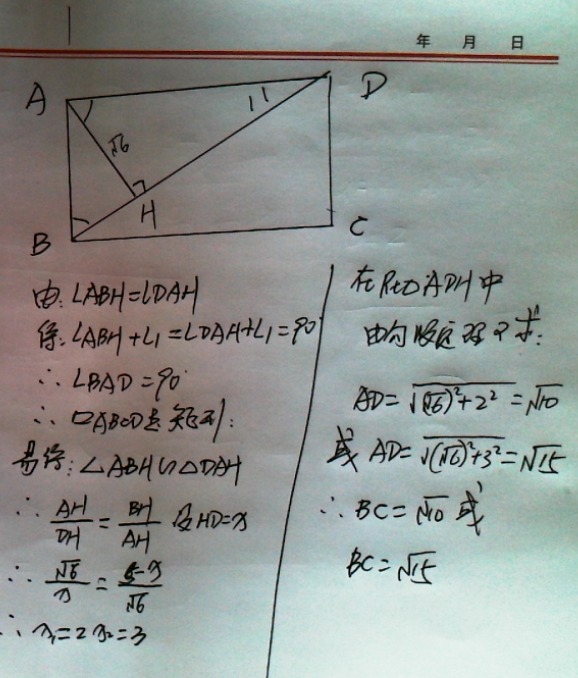 年 月 日
A
D
11
√6
H
B
C
由:∠ABH=∠DAH
得:∠ABH+∠1=∠DAH+∠1=90°
∴∠BAD=90°
∴▱ABCD是矩形:
易得:△ABH∽△DAH
∴AH/DH=BH/AH 设HD=x
∴√6/x=5-x/√6
∴x₁=2 x₂=3
在Rt△ADH中
由勾股定理可求:
AD=√(√6)²+2²=√10
或 AD=√(√6)²+3²=√15
∴BC=√10 或
BC=√15